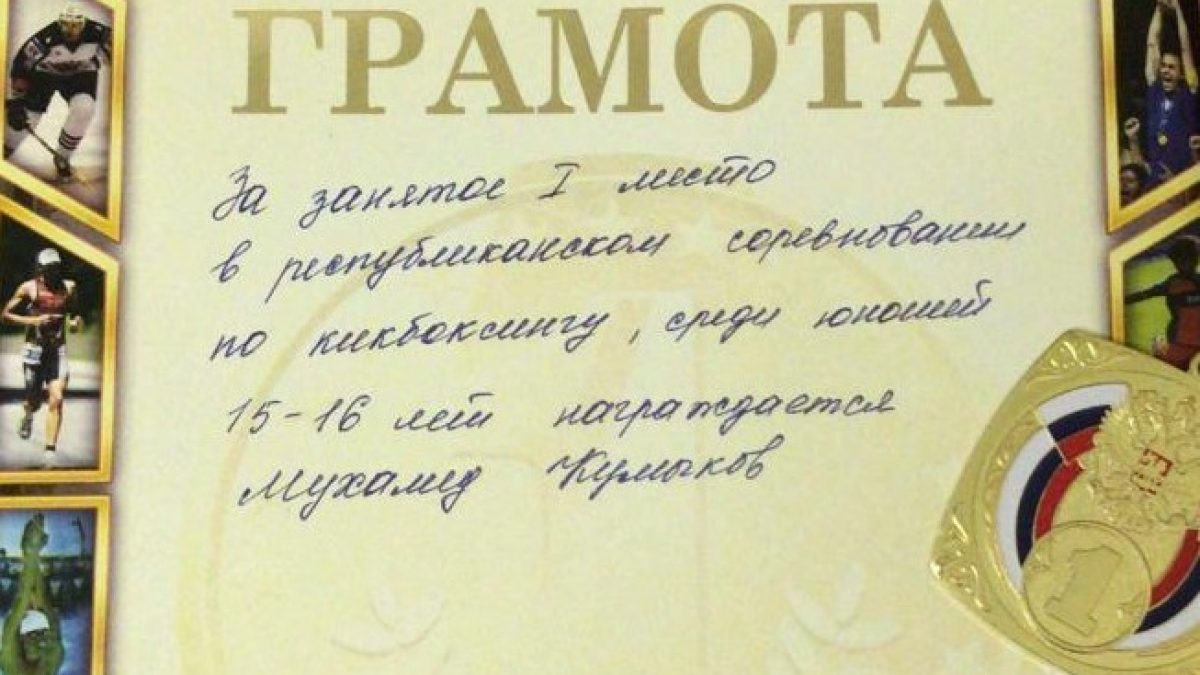 ГРАМОТА
За занятое I место
в республиканском соревновании
по кикбоксингу, среди юношей
15-16 лет награждается
Мухамед Кумыков
1